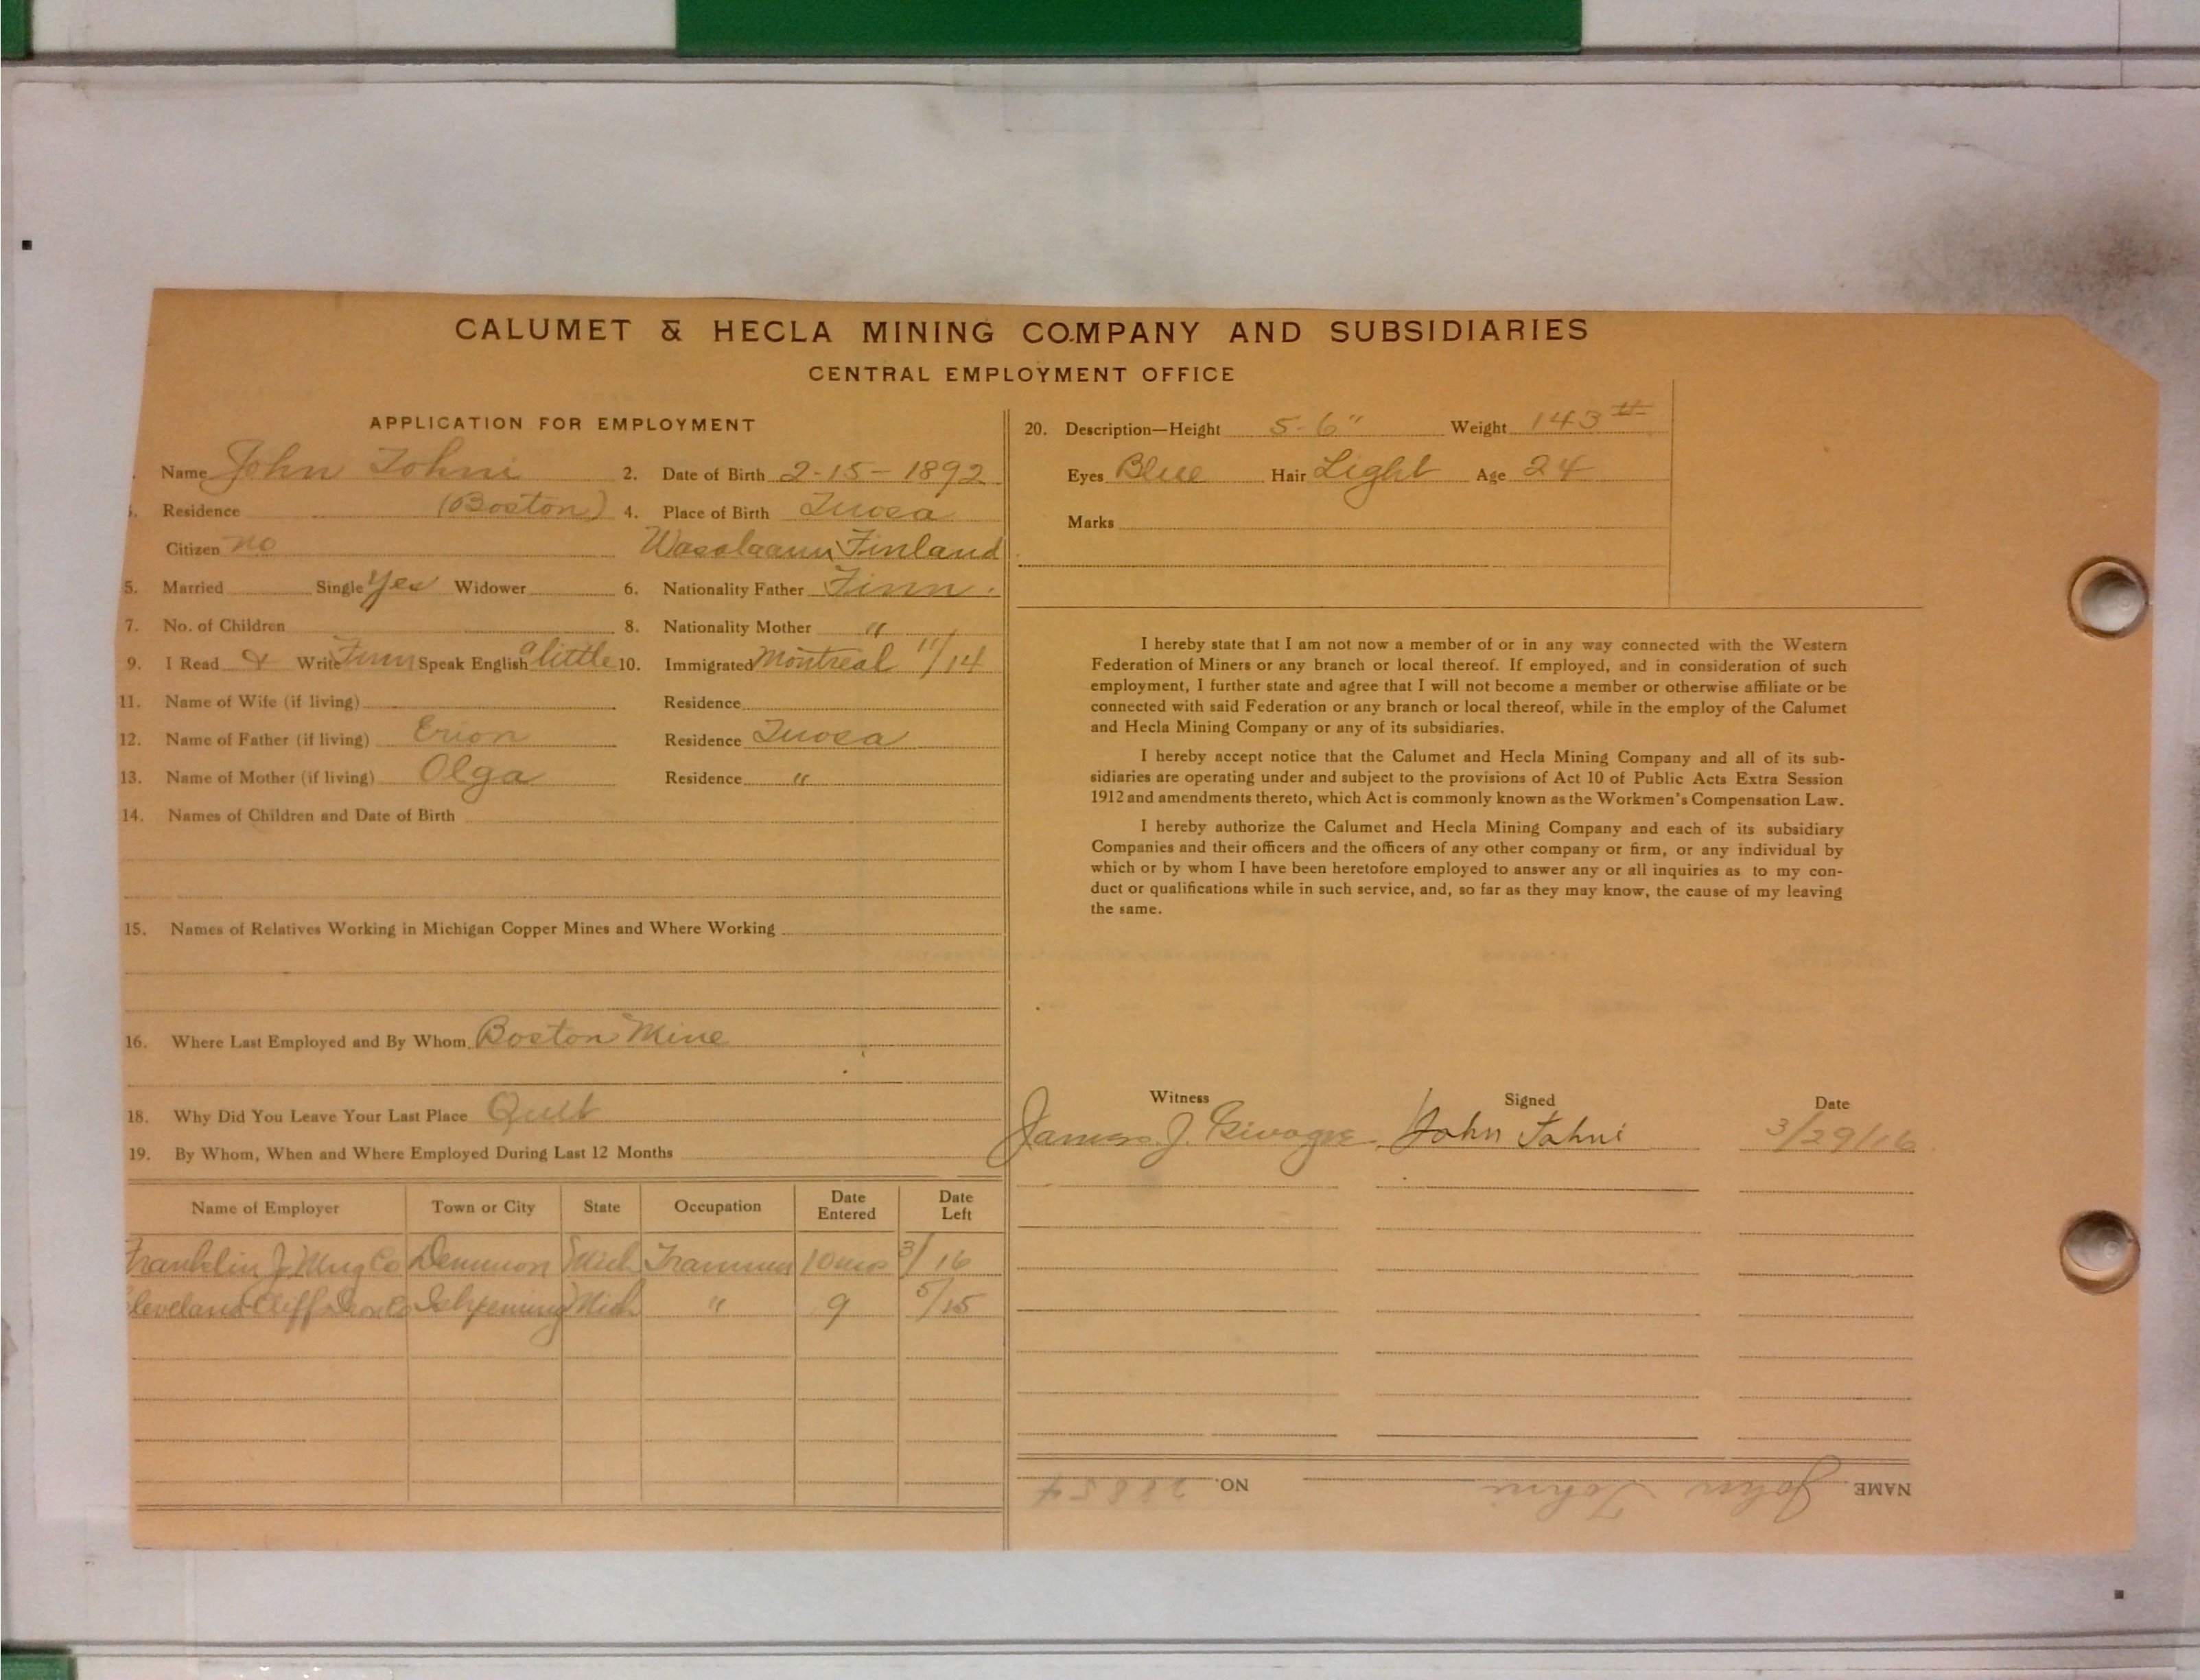 CALUMET & HECLA MINING COMPANY AND SUBSIDIARIES
CENTRAL EMPLOYMENT OFFICE
APPLICATION FOR EMPLOYMENT
Name John Tohni 2. Date of Birth 2-15-1892
Residence (Boston) 4. Place of Birth
Citizen no Finland
5. Married Single Yes Widower 6. Nationality Father Finn.
7. No. of Children 8. Nationality Mother "
9. I Read & Write Finn Speak English a little 10. Immigrated Montreal 11/14
11. Name of Wife (if living) Residence
12. Name of Father (if living) Residence
13. Name of Mother (if living) Olga Residence "
14. Names of Children and Date of Birth
15. Names of Relatives Working in Michigan Copper Mines and Where Working
16. Where Last Employed and By Whom Boston Mine
18. Why Did You Leave Your Last Place Quit
19. By Whom, When and Where Employed During Last 12 Months
Name of Employer Town or City State Occupation Date Entered Date Left
Franklin J. Mng Co Demmon Mich Trammer 10 mos 3/16
Cleveland Cliff Iron Co Ishpeming Mich " 9 5/15
20. Description—Height 5-6" Weight 143 #
Eyes Blue Hair Light Age 24
Marks
I hereby state that I am not now a member of or in any way connected with the Western
Federation of Miners or any branch or local thereof. If employed, and in consideration of such
employment, I further state and agree that I will not become a member or otherwise affiliate or be
connected with said Federation or any branch or local thereof, while in the employ of the Calumet
and Hecla Mining Company or any of its subsidiaries.
I hereby accept notice that the Calumet and Hecla Mining Company and all of its sub-
sidiaries are operating under and subject to the provisions of Act 10 of Public Acts Extra Session
1912 and amendments thereto, which Act is commonly known as the Workmen's Compensation Law.
I hereby authorize the Calumet and Hecla Mining Company and each of its subsidiary
Companies and their officers and the officers of any other company or firm, or any individual by
which or by whom I have been heretofore employed to answer any or all inquiries as to my con-
duct or qualifications while in such service, and, so far as they may know, the cause of my leaving
the same.
Witness Signed Date
James J. John Tohni 3/29/16
NAME John Tohni NO. 28854